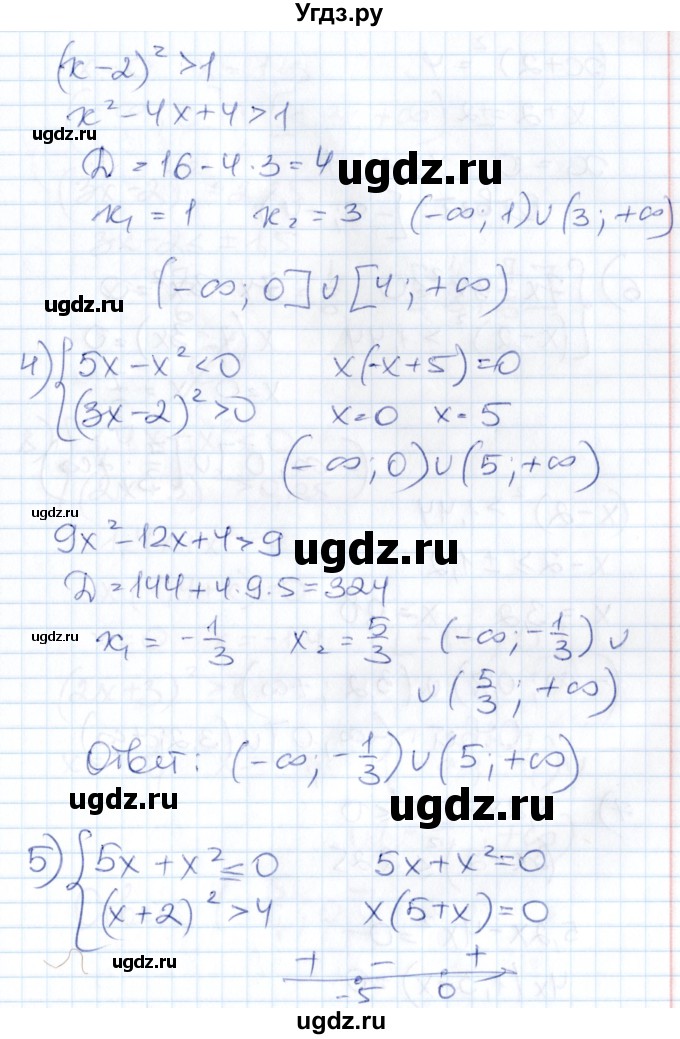 Угдз.ру
(x-2)² > 1
x² - 4x + 4 > 1
угдз.ru
ugdz.ru
D = 16 - 4·3 = 4
ugdz.ru
x₁ = 1 x₂ = 3 (-∞; 1)∪(3; +∞)
ugdz.ru
(-∞; 0]∪[4; +∞)
4) { 5x - x² < 0 x(-x+5) = 0
(3x-2)² > 0 x = 0 x = 5
(-∞; 0)∪(5; +∞)
ugdz.ru
9x² - 12x + 4 > 9
ugdz.ru
D = 144 + 4·9·5 = 324
ugdz.ru
x₁ = -1/3 x₂ = 5/3 (-∞; -1/3) ∪
∪ (5/3; +∞)
Ответ: (-∞; -1/3)∪(5; +∞)
ugdz.ru
ugdz.ru
5) { 5x + x² ≤ 0 5x + x² = 0
(x+2)² > 4 x(5+x) = 0
ugdz.ru
+ - +
-5 0
ugdz.ru